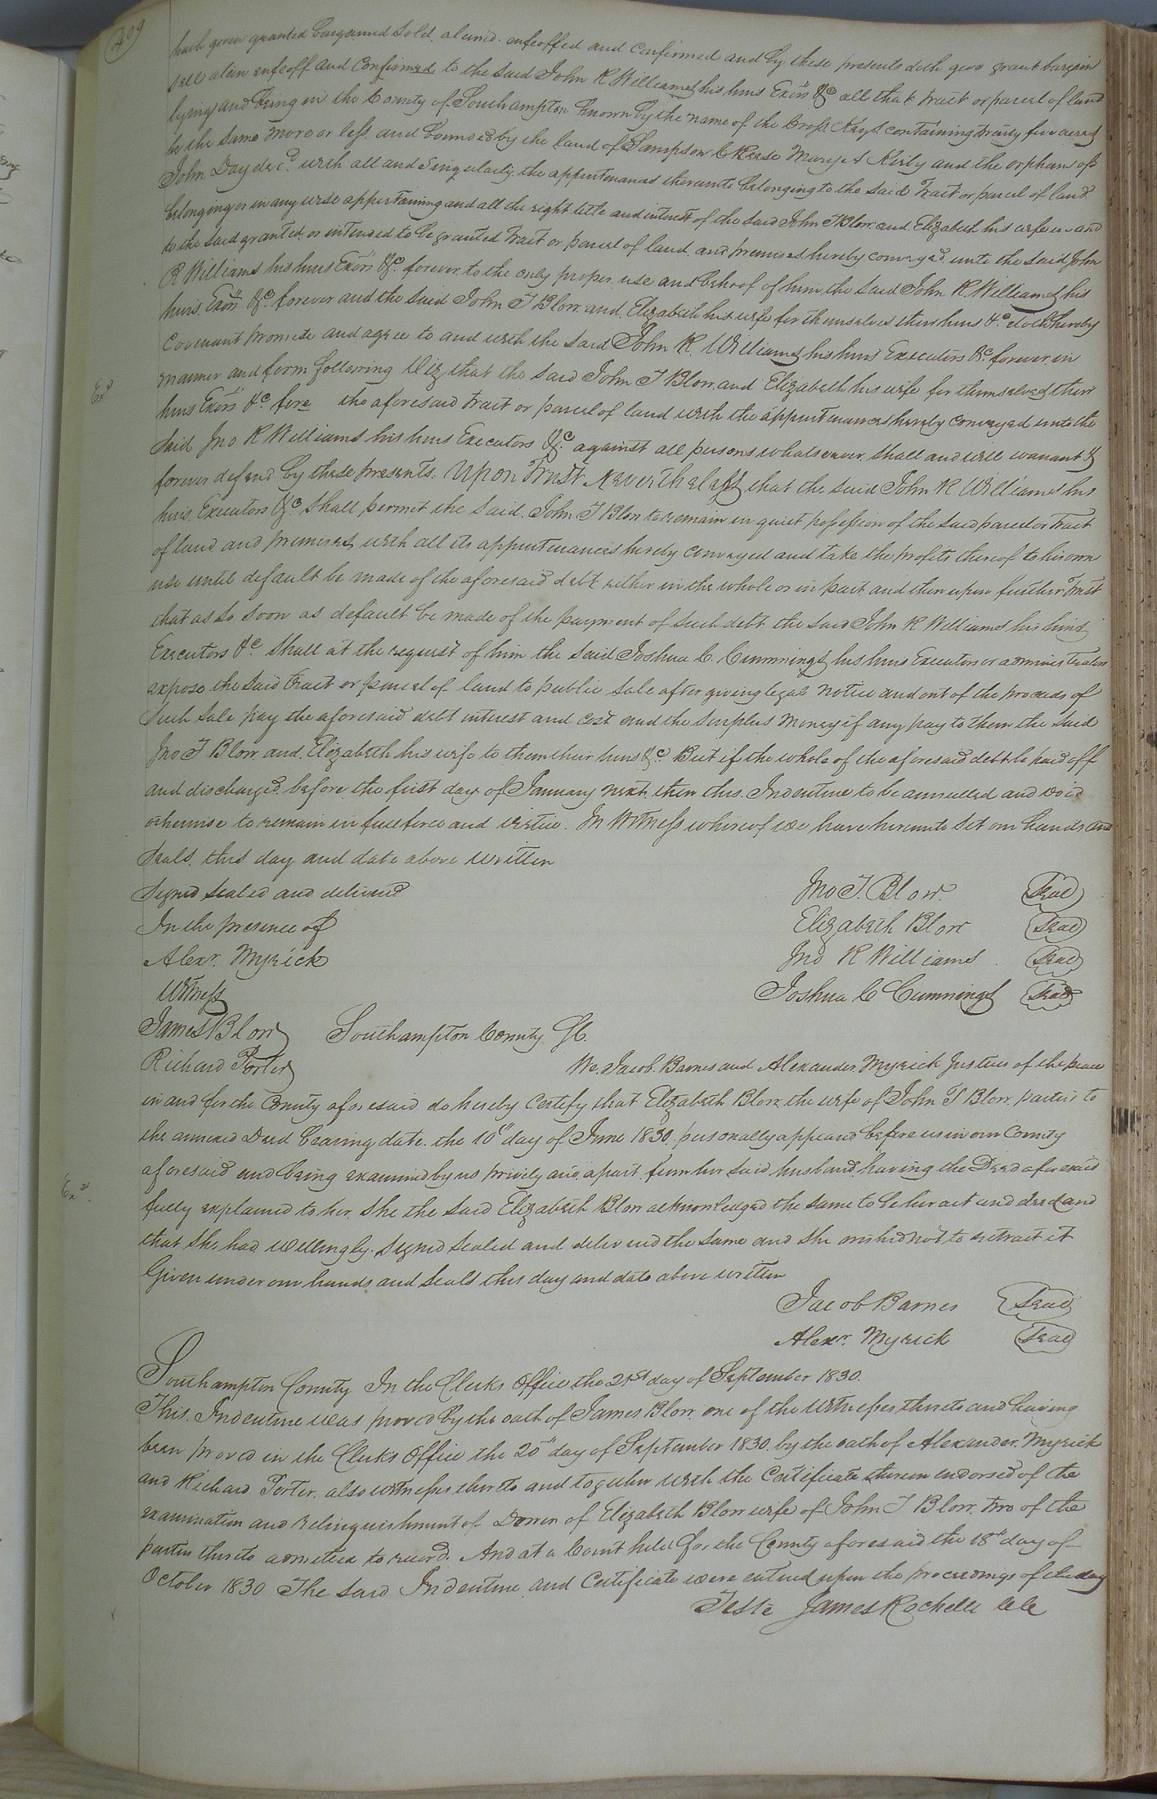 409
hath given granted bargained sold aliened enfeoffed and confirmed and by these presents doth give grant bargain
sell alien enfeoff and confirmed to the said John R Williams his heirs Exors &c all that tract or parcel of land
lying and being in the County of Southampton known by the name of the Cross Keys containing twenty five acres
be the same more or less and bounded by the land of Sampson C Reese Mary A Kirby and the orphans of
John Day decd. with all and singularly the appurtenances thereunto belonging to the said Tract or parcel of land
belonging or in any wise appertaining and all the right title and interest of the said John T Blow and Elizabeth his wife in and
to the said granted or intended to be granted Tract or parcel of land and premises hereby conveyed unto the said John
R Williams his heirs Exors &c. forever to the only proper use and behoof of him the said John R Williams his
heirs Exors &c. forever and the said John T Blow and Elizabeth his wife for themselves their heirs &c. doth hereby
Covenant promise and agree to and with the said John R. Williams his heirs Executors &c. forever in
manner and form following Viz that the said John T Blow and Elizabeth his wife for themselves their
Exd
heirs Exors &c. fore the aforesaid tract or parcel of land with the appurtenances hereby conveyed unto the
said Jno R Williams his heirs Executors &c. against all persons whatsoever shall and will warrant &
forever defend by these presents. Upon Trust Nevertheless that the said John R Williams his
heirs Executors &c. shall permit the said John T Blow to remain in quiet possession of the said parcel or Tract
of land and premises with all its appurtenances hereby conveyed and take the profits thereof to his own
use until default be made of the aforesaid debt either in the whole or in part and then upon further Trust
that as so soon as default be made of the payment of such debt the said John R Williams his heirs
Executors &c. shall at the request of him the said Joshua C. Cummings his heirs Executors or administrators
expose the said tract or parcel of land to public sale after giving legal notice and out of the proceeds of
such sale pay the aforesaid debt interest and cost and the surplus money if any pay to them the said
Jno T Blow and Elizabeth his wife to them their heirs &c. But if the whole of the aforesaid debt be paid off
and discharged before the first day of January next then this Indenture to be annulled and void
otherwise to remain in full force and virtue. In Witness whereof we have hereunto set our hands and
seals this day and date above written
Signed sealed and delivered Jno T. Blow. Seal
In the presence of Elizabeth Blow Seal
Alexr. Myrick Jno R Williams Seal
Witness Joshua C Cummings Seal
James Blow Southampton County Sc.
Richard Porter We Jacob Barnes and Alexander Myrick Justices of the peace
in and for the County aforesaid do hereby Certify that Elizabeth Blow the wife of John T Blow parties to
the annexed Deed bearing date the 10th day of June 1830 personally appeared before us in our County
aforesaid and being examined by us privily and apart from her said husband having the Deed aforesaid
Exd.
fully explained to her she the said Elizabeth Blow acknowledged the same to be her act and deed and
that she had willingly signed sealed and delivered the same and she wished not to retract it
Given under our hands and seals this day and date above written
Jacob Barnes Seal
Alexr. Myrick Seal
Southampton County In the Clerks Office the 21st day of September 1830.
This Indenture was proved by the oath of James Blow one of the witnesses thereto and having
been proved in the Clerks Office the 20th day of September 1830 by the oath of Alexander Myrick
and Richard Porter also witnesses thereto and together with the Certificate thereon endorsed of the
examination and relinquishment of Dower of Elizabeth Blow wife of John T Blow two of the
parties thereto admitted to record. And at a Court held for the County aforesaid the 18th day of
October 1830 The said Indenture and Certificate were entered upon the proceedings of the day
Teste James Rochelle